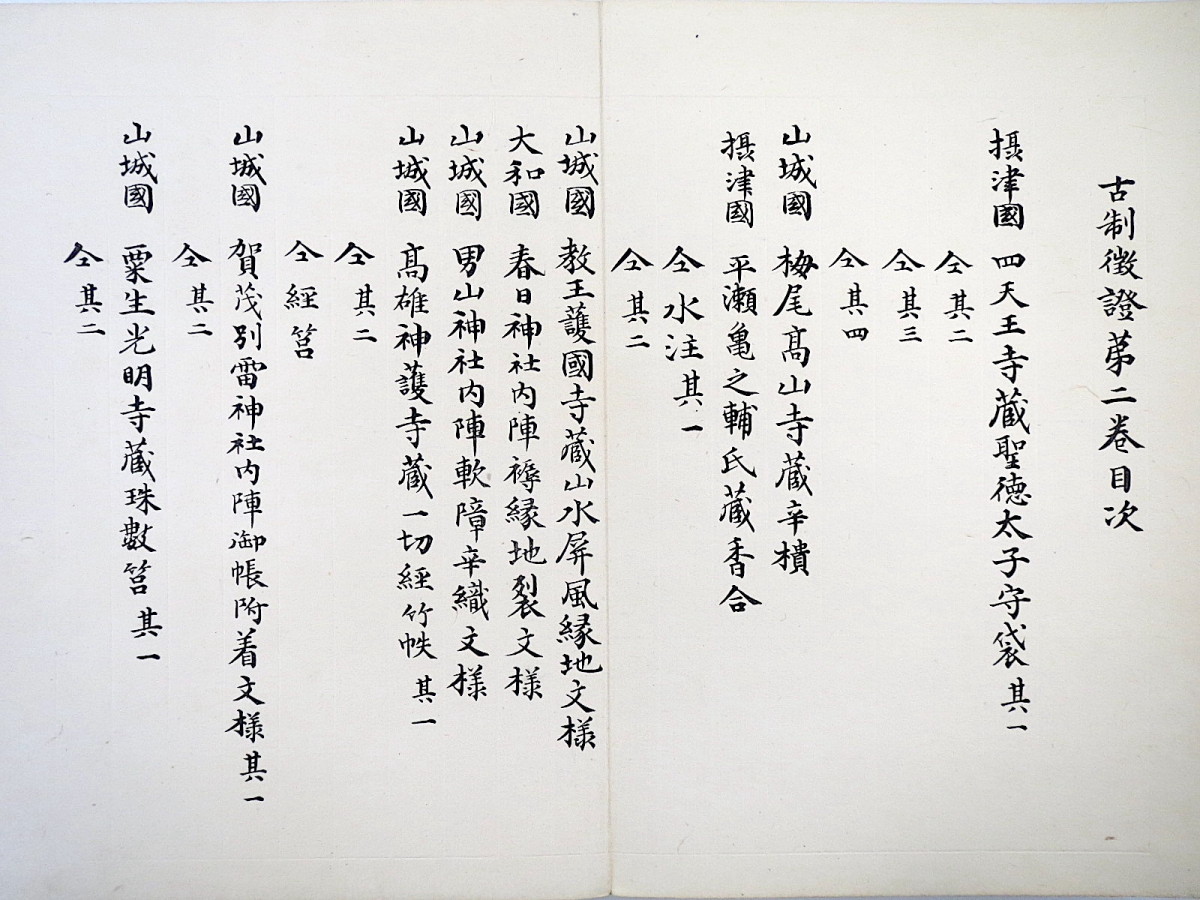 古制徴證第二巻目次
摂津國 四天王寺蔵聖徳太子守袋 其一
仝 其二
仝 其三
仝 其四
山城國 栂尾高山寺蔵辛櫃
摂津國 平瀬亀之輔氏蔵香合
仝 水注 其一
仝 其二
山城國 教王護國寺蔵山水屏風縁地文様
大和國 春日神社内陣褥縁地裂文様
山城國 男山神社内陣軟障辛織文様
山城國 高雄神護寺蔵一切経竹帙 其一
仝 其二
仝 経筥
山城國 賀茂別雷神社内陣御帳附着文様 其一
仝 其二
山城國 粟生光明寺蔵珠數筥 其一
仝 其二